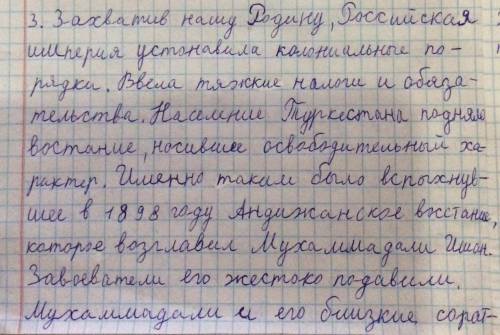 3. Захватив нашу Родину, Российская
империя устонавила колониальные по-
рядки. Ввела тяжкие налоги и обяза-
тельства. Население Туркестана подняло
востание, носившее освободительный ха-
рактер. Именно таким было вспыхнув-
шее в 1898 году Андижанское восстание,
которое возглавил Мухаммадали Ишан.
Завоеватели его жестоко подавили.
Мухаммадали и его близкие сорат-